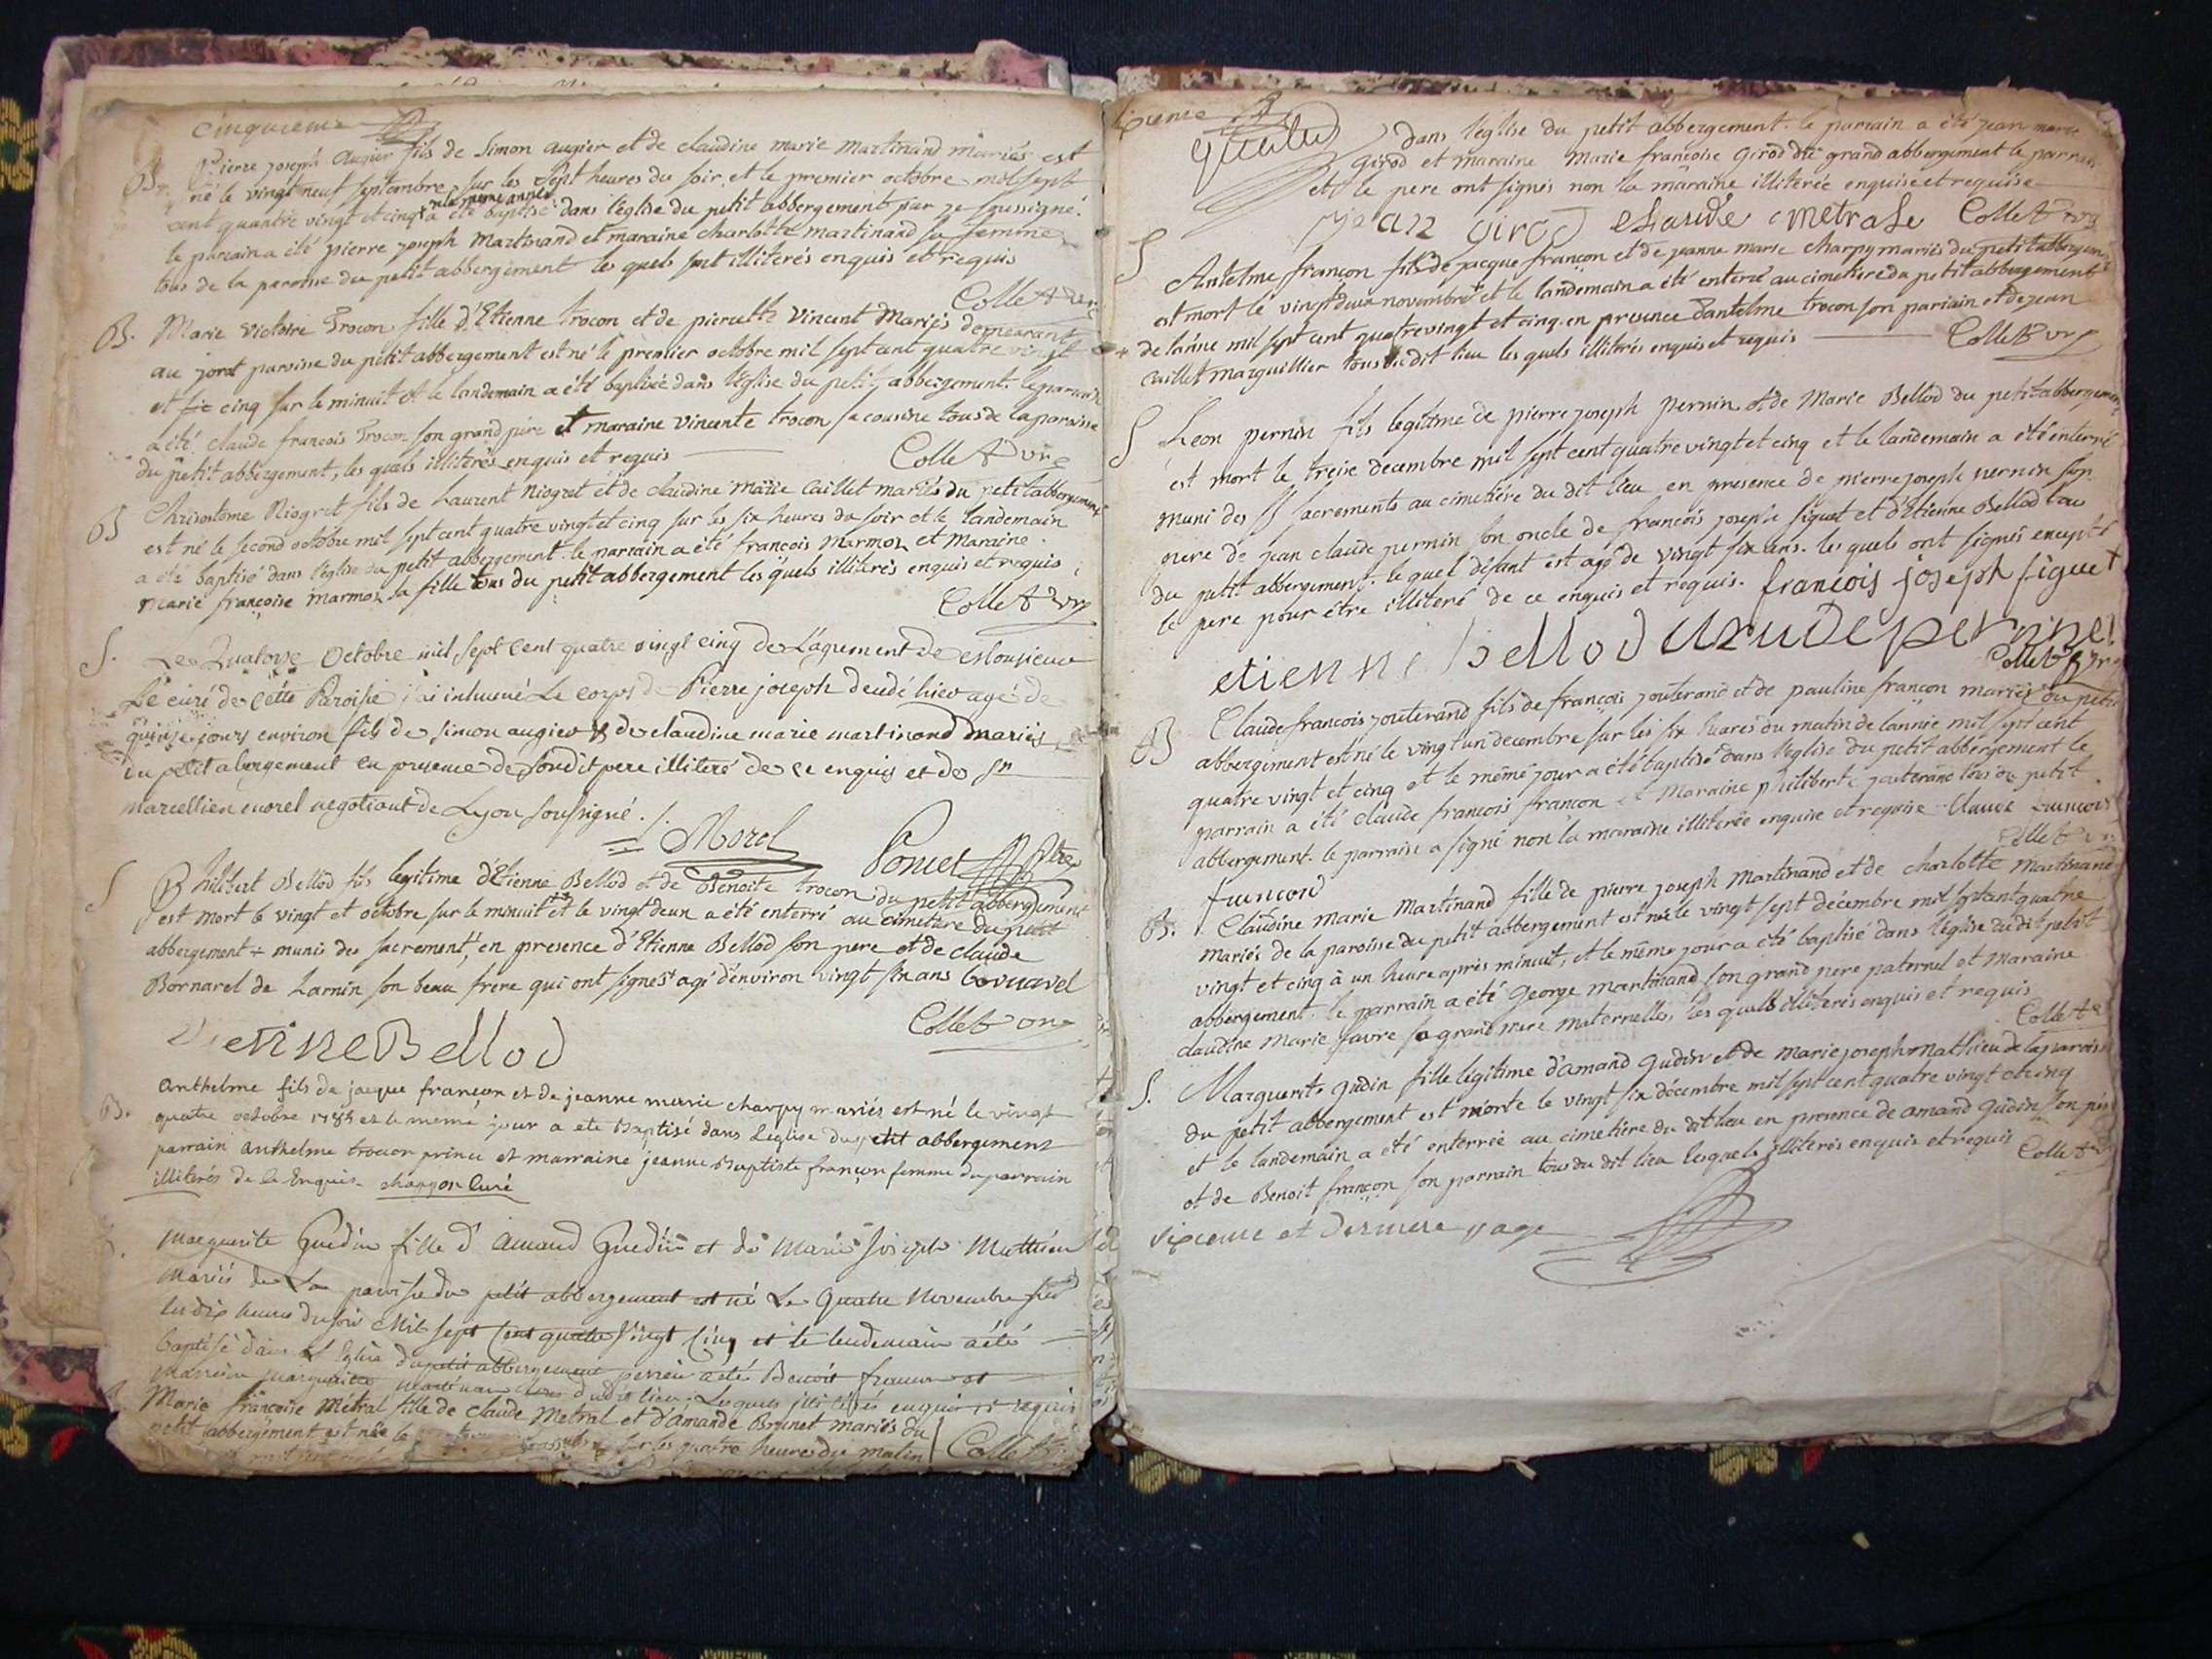 cinquieme
B. Pierre joseph Augier fils de Simon augier et de claudine marie martinand mariés est
né le vingt neuf septembre sur les sept heures du soir et le premier octobre mil sept
cent quantre vingt et cinq a été baptisé dans l'église du petit abbergement par je soussigné.
de la meme année
le parrain a été pierre joseph Martinand et maraine charlotte martinand sa femme
tous de la paroisse du petit abbergement les quels sont illiterés enquis et requis
Collet
B. Marie Victoire Trocon fille d'Etienne trocon et de pierrette Vincent Mariés demeurant
au jorat paroisse du petit abbergement est né le premier octobre mil sept cent quatre vingt
et cinq sur le minuit et le landemain a été baptisée dans l'église du petit abbergement. le parrain
a été claude francois Trocon son grand père et maraine vincente trocon sa cousine tous de la paroisse
du petit abbergement, les quels illiterés enquis et requis
Collet
B Chrisostome Niogret fils de Laurent Niogret et de claudine marie caillet mariés du petit abbergement
est né le second octobre mil sept cent quatre vingt et cinq sur les six heures du soir et le landemain
a été baptisé dans l'église du petit abbergement. le parrain a été francois Marmos et Maraine
marie françoise marmos sa fille tous du petit abbergement les quels illiterés enquis et requis
Collet
S. Le Quatorze Octobre mil sept Cent quatre vingt cinq de L'agrement de
Le curé de cette Paroisse j'ai inhumé Le corps de Pierre joseph decedé hier agé de
quinze jours environ fils de simon augier & de claudine marie martinand mariés
du petit abergement en presence de sondit pere illiteré de ce enquis et de Sr
marcellien morel negotiant de Lyon soussigné
Morel Poncet Ptre
S Philibert Bellod fils legitime d'Etienne Bellod et de Benoite trocon du petit abbergement
est mort le vingt et octobre sur le minuit et le vingt deux a été enterré au cimetiere du petit
abbergement + munis des sacrements, en presence d'Etienne Bellod son pere et de claude
Bornarel de Larnin son beau frere qui ont signés agé d'environ vingt six ans bornarel
etienne Bellod
Collet
B. anthelme fils de jacque françon et de jeanne marie charpy mariés est né le vingt
quatre octobre 1785 et le meme jour a eté Baptisé dans L'eglise du petit abbergement
parrain anthelme trocon et marraine jeanne Baptiste françon femme du parrain
illiterés de ce Enquis. curé
marguerite Guedin fille d'Amand Guedin et de Marie joseph Mathieu
mariés de La paroisse du petit abbergement est né Le Quatre Novembre sur
les dix heures du soir Mil sept Cent quatre Vingt Cinq et le lendemain a été
baptisé dans L'Eglise du petit abbergement a été Benoit francon et
marraine marguerite du dit lieu. Lesquels illiterés enquis et requis
Marie françoise Métral fille de claude Metral et d'amande Brunet mariés du
petit abbergement est née le sur les quatre heures du matin
Collet
dans l'église du petit abbergement. le parrain a été jean marie
Girod et maraine Marie francoise Girod du grand abbergement le parrain
et le pere ont signés non la maraine illiterée enquise et requise
jean girod claude metrale Collet
S Antelme françon fils de jacque françon et de jeanne marie charpy mariés du petit abbergement
est mort le vingt deux novembre et le landemain a été enterré au cimetiere du petit abbergement
+ de l'anné mil sept cent quatre vingt et cinq en presence d'antelme trocon son parrain et de jean
caillet marguillier tous du dit lieu les quels illiterés enquis et requis
Collet
S Leon pernin fils legitime de pierre joseph pernin et de Marie Bellod du petit abbergement
est mort le treise decembre mil sept cent quatre vingt et cinq et le landemain a été enterré
muni des SS sacrements au cimetiére du dit lieu en presence de pierre joseph pernin son
pere de jean claude pernin son oncle de françois joseph siguet et d'Etienne Bellod tous
du petit abbergement. le quel défunt est agé de vingt six ans. les quels ont signés excepté
le pere pour être illiteré de ce enquis et requis. francois joseph siguet
etienne bellod
Collet
B Claude francois jouterand fils de françois jouterand et de pauline françon mariés du petit
abbergement est né le vingt un decembre sur les six heures du matin de l'année mil sept cent
quatre vingt et cinq et le même jour a été baptisé dans l'église du petit abbergement le
parrain a été claude francois françon et Maraine philiberte jouterand tous du petit
abbergement. le parrain a signé non la maraine illiterée enquise et requise Claude francois
francon
Collet
B. Claudine Marie Martinand fille de pierre joseph Martinand et de charlotte martinand
mariés de la paroisse du petit abbergement est née le vingt sept décembre mil sept cent quatre
vingt et cinq à un heure aprés minuit, et le même jour a été baptisé dans l'église du dit petit
abbergement. le parrain a été George martinand son grand pere paternel et Maraine
claudine Marie favre sa grand mere maternelle, les quels illiterés enquis et requis
Collet
S. Marguerite Gudin fille légitime d'amand Gudin et de marie joseph Mathieu de la paroisse
du petit abbergement est morte le vingt six décembre mil sept cent quatre vingt et cinq
et le landemain a été enterrée au cimetiére du dit lieu en presence de amand gudin son pere
et de Benoit françon son parrain tous du dit lieu lesquels illiterés enquis et requis
Collet
sixieme et derniere page